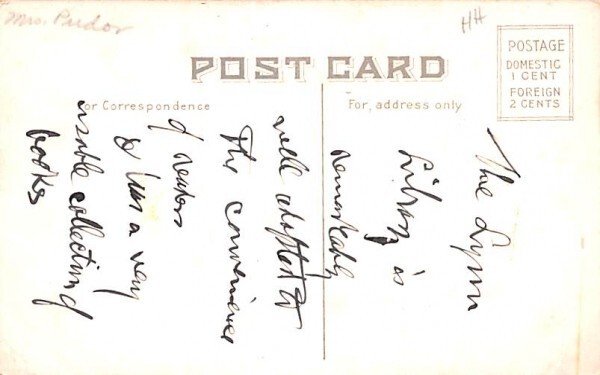 Mrs. Pudor
HH
POST CARD
POSTAGE
DOMESTIC
1 CENT
FOREIGN
2 CENTS
For Correspondence
For, address only
The Lynn
Library is
remarkably
well adapted to
The convenience
of readers
& has a very
usable collection of
books